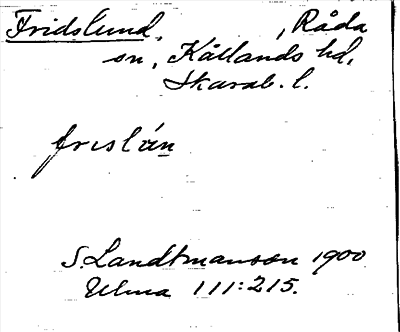 Fridslund, , Råda
sn, Kållands hd,
Skarab. l.
frislún
S. Landtmanson 1900
Ulma 111:215.